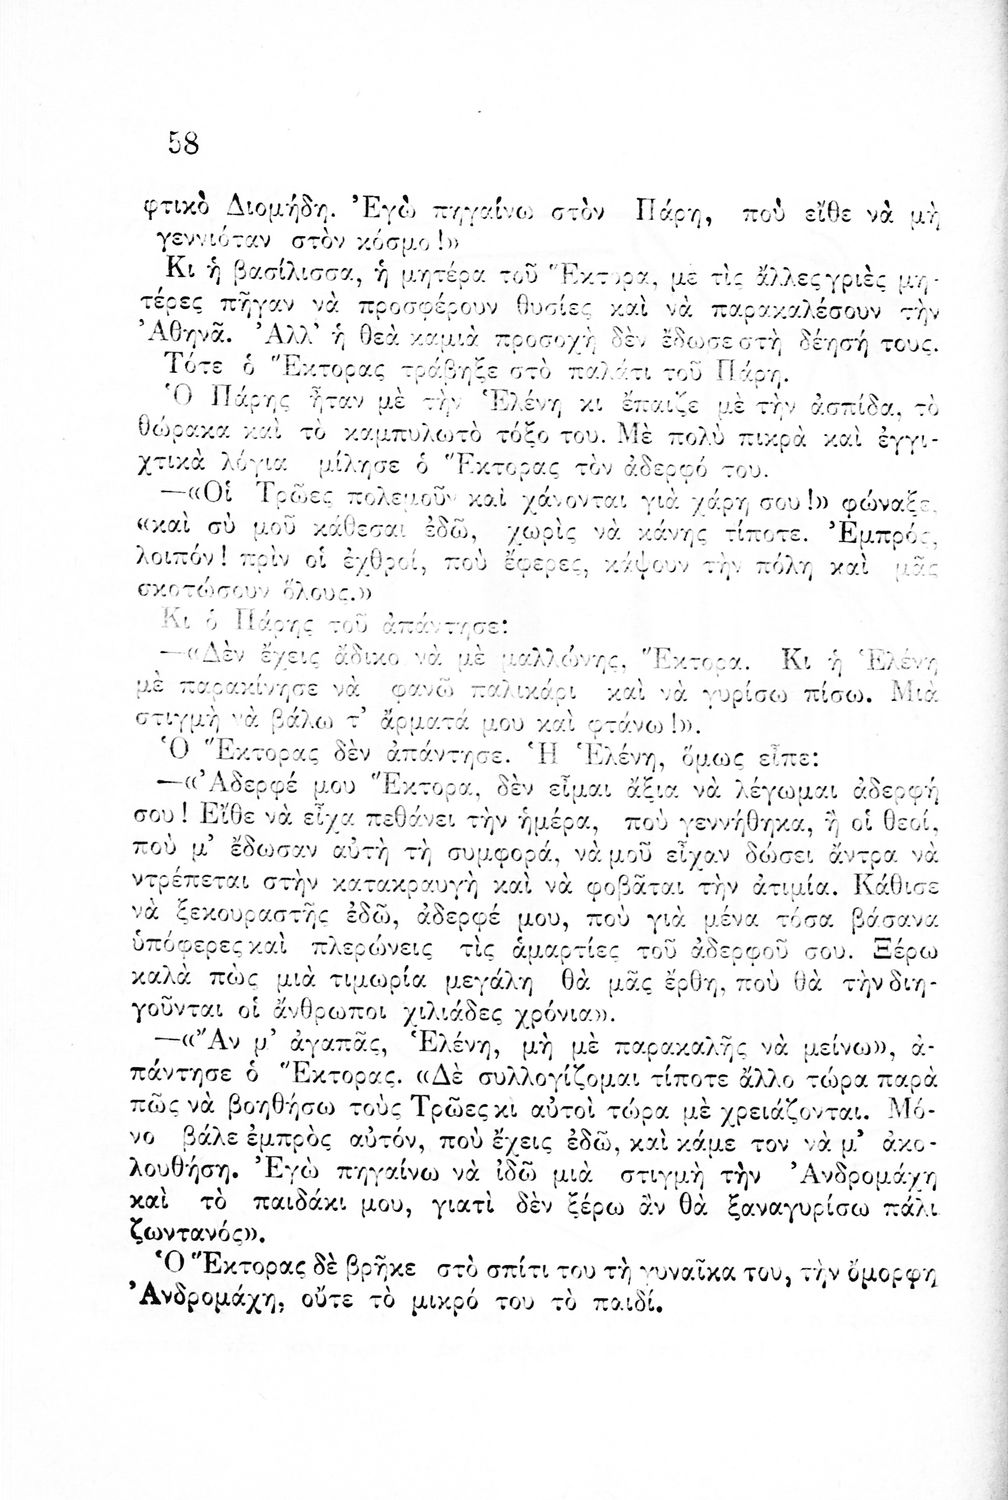 58
φτικὸ Διομήδη. Ἐγὼ πηγαίνω στὸν Πάρη, ποὺ εἴθε νὰ μὴ
γεννιόταν στὸν κόσμο!»
Κι ἡ βασίλισσα, ἡ μητέρα τοῦ Ἕκτορα, μὲ τὶς ἄλλες γριὲς μη-
τέρες πῆγαν νὰ προσφέρουν θυσίες καὶ νὰ παρακαλέσουν τὴν
Ἀθηνᾶ. Ἀλλ' ἡ θεὰ καμιὰ προσοχὴ δὲν ἔδωσε στὴ δέησή τους.
Τότε ὁ Ἕκτορας τράβηξε στὸ παλάτι τοῦ Πάρη.
Ὁ Πάρης ἦταν μὲ τὴν Ἑλένη κι ἔπαιζε μὲ τὴν ἀσπίδα, τὸ
θώρακα καὶ τὸ καμπυλωτὸ τόξο του. Μὲ πολὺ πικρὰ καὶ ἐγγι-
χτικὰ λόγια μίλησε ὁ Ἕκτορας τὸν ἀδερφό του.
—«Οἱ Τρῶες πολεμοῦν καὶ χάνονται γιὰ χάρη σου!» φώναξε,
«καὶ σὺ μοῦ κάθεσαι ἐδῶ, χωρὶς νὰ κάνης τίποτε. Ἐμπρός,
λοιπόν! πρὶν οἱ ἐχθροί, ποὺ ἔφερες, κάψουν τὴν πόλη καὶ μᾶς
σκοτώσουν ὅλους.»
Κι ὁ Πάρης τοῦ ἀπάντησε:
—«Δὲν ἔχεις ἄδικο νὰ μὲ μαλλώνης, Ἕκτορα. Κι ἡ Ἑλένη
μὲ παρακίνησε νὰ φανῶ παλικάρι καὶ νὰ γυρίσω πίσω. Μιὰ
στιγμὴ νὰ βάλω τ' ἄρματά μου καὶ φτάνω!».
Ὁ Ἕκτορας δὲν ἀπάντησε. Ἡ Ἑλένη, ὅμως εἶπε:
—«Ἀδερφέ μου Ἕκτορα, δὲν εἶμαι ἄξια νὰ λέγωμαι ἀδερφή
σου! Εἴθε νὰ εἶχα πεθάνει τὴν ἡμέρα, ποὺ γεννήθηκα, ἢ οἱ θεοί,
ποὺ μ' ἔδωσαν αὐτὴ τὴ συμφορά, νὰ μοῦ εἶχαν δώσει ἄντρα νὰ
ντρέπεται στὴν κατακραυγὴ καὶ νὰ φοβᾶται τὴν ἀτιμία. Κάθισε
νὰ ξεκουραστῆς ἐδῶ, ἀδερφέ μου, ποὺ γιὰ μένα τόσα βάσανα
ὑπόφερες καὶ πλερώνεις τὶς ἁμαρτίες τοῦ ἀδερφοῦ σου. Ξέρω
καλὰ πὼς μιὰ τιμωρία μεγάλη θὰ μᾶς ἔρθη, ποὺ θὰ τὴν διη-
γοῦνται οἱ ἄνθρωποι χιλιάδες χρόνια».
—«Ἂν μ' ἀγαπᾶς, Ἑλένη, μὴ μὲ παρακαλῆς νὰ μείνω», ἀ-
πάντησε ὁ Ἕκτορας. «Δὲ συλλογίζομαι τίποτε ἄλλο τώρα παρὰ
πῶς νὰ βοηθήσω τοὺς Τρῶες κι αὐτοὶ τώρα μὲ χρειάζονται. Μό-
νο βάλε ἐμπρὸς αὐτόν, ποὺ ἔχεις ἐδῶ, καὶ κάμε τον νὰ μ' ἀκο-
λουθήση. Ἐγὼ πηγαίνω νὰ ἰδῶ μιὰ στιγμὴ τὴν Ἀνδρομάχη
καὶ τὸ παιδάκι μου, γιατὶ δὲν ξέρω ἂν θὰ ξαναγυρίσω πάλι
ζωντανός».
Ὁ Ἕκτορας δὲ βρῆκε στὸ σπίτι του τὴ γυναῖκα του, τὴν ὄμορφη
Ἀνδρομάχη, οὔτε τὸ μικρό του τὸ παιδί.